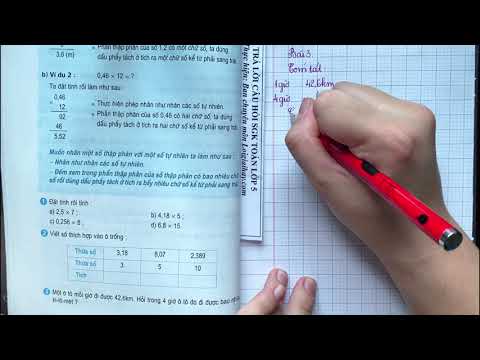 3,6 (m)
Phần thập phân của số 1,2 có một chữ số, ta dùng
dấu phẩy tách ở tích ra một chữ số kể từ phải sang trái.
b) Ví dụ 2 : 0,46 × 12 = ?
Ta đặt tính rồi làm như sau :
0,46
12
92
46
5,52
• Thực hiện phép nhân như nhân các số tự nhiên.
• Phần thập phân của số 0,46 có hai chữ số, ta dùng
dấu phẩy tách ở tích ra hai chữ số kể từ phải sang trái.
Muốn nhân một số thập phân với một số tự nhiên ta làm như sau :
– Nhân như nhân các số tự nhiên.
– Đếm xem trong phần thập phân của số thập phân có bao nhiêu chữ
số rồi dùng dấu phẩy tách ở tích ra bấy nhiêu chữ số kể từ phải sang trái.
1 Đặt tính rồi tính
a) 2,5 × 7 ; b) 4,18 × 5 ;
c) 0,256 × 8 ; d) 6,8 × 15.
2 Viết số thích hợp vào ô trống :
Thừa số 3,18 8,07 2,389
Thừa số 3 5 10
Tích
3 Một ô tô mỗi giờ đi được 42,6km. Hỏi trong 4 giờ ô tô đó đi được bao
ki-lô-mét ?
TRẢ LỜI CÂU HỎI SGK TOÁN LỚP 5
Thực hiện: Ban chuyên môn Loigiaihay.com
Bài 3
Tóm tắt:
1 giờ 42,6km
4 giờ